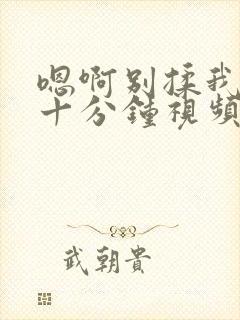 嗯啊别揉我
十分鍾視頻
武朝貴